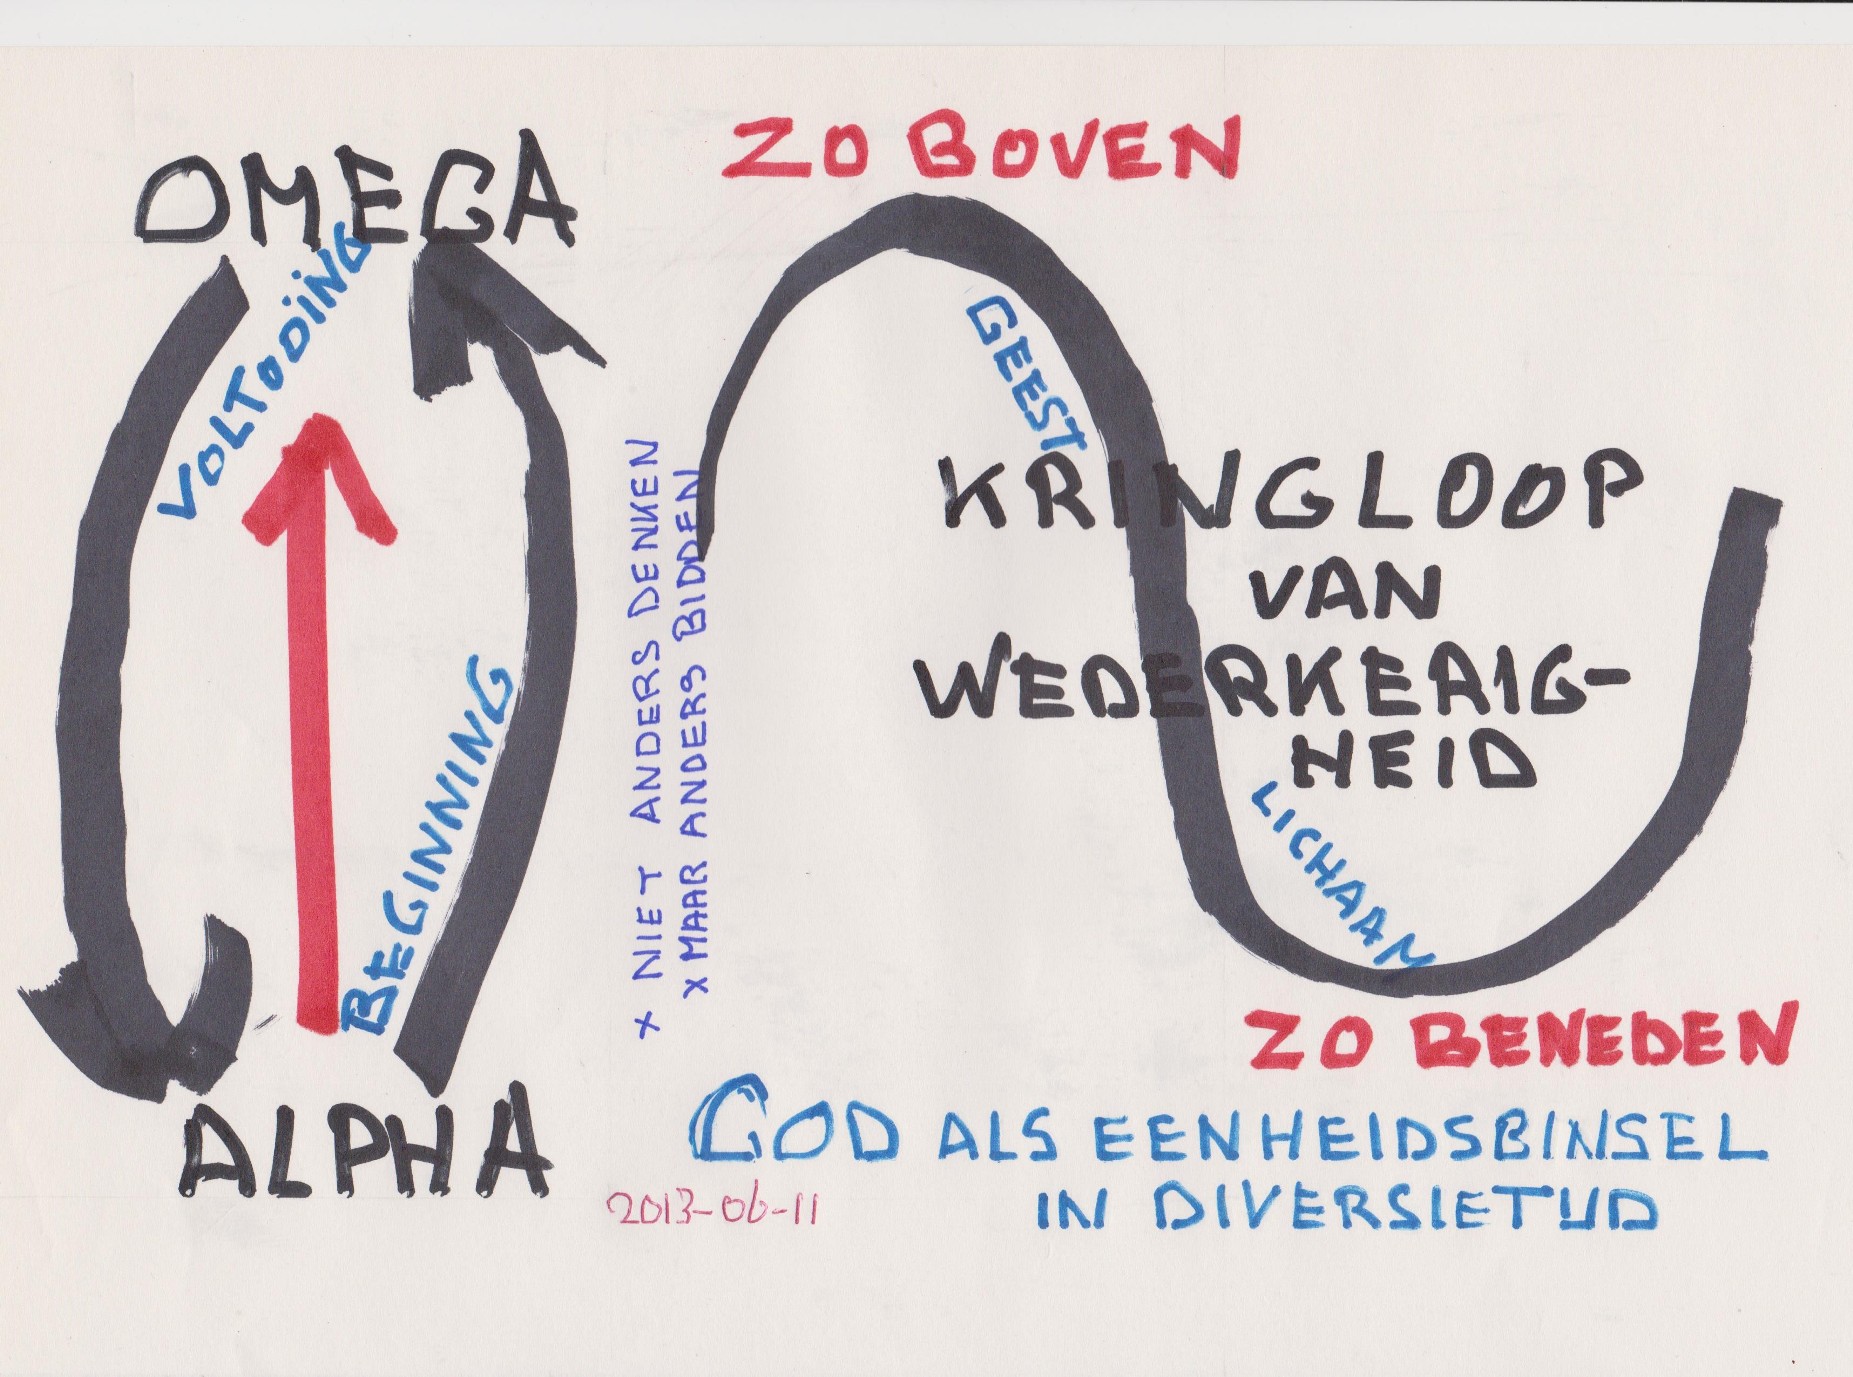 OMEGA
VOLTODING
BEGINNING
ALPHA
x NIET ANDERS DENKEN
x MAAR ANDERS BIDDEN
ZO BOVEN
GEEST
KRINGLOOP
VAN
WEDERKERIG-
HEID
LICHAAM
ZO BENEDEN
GOD ALS EENHEIDSBINSEL
IN DIVERSIETIJD
2013-06-11